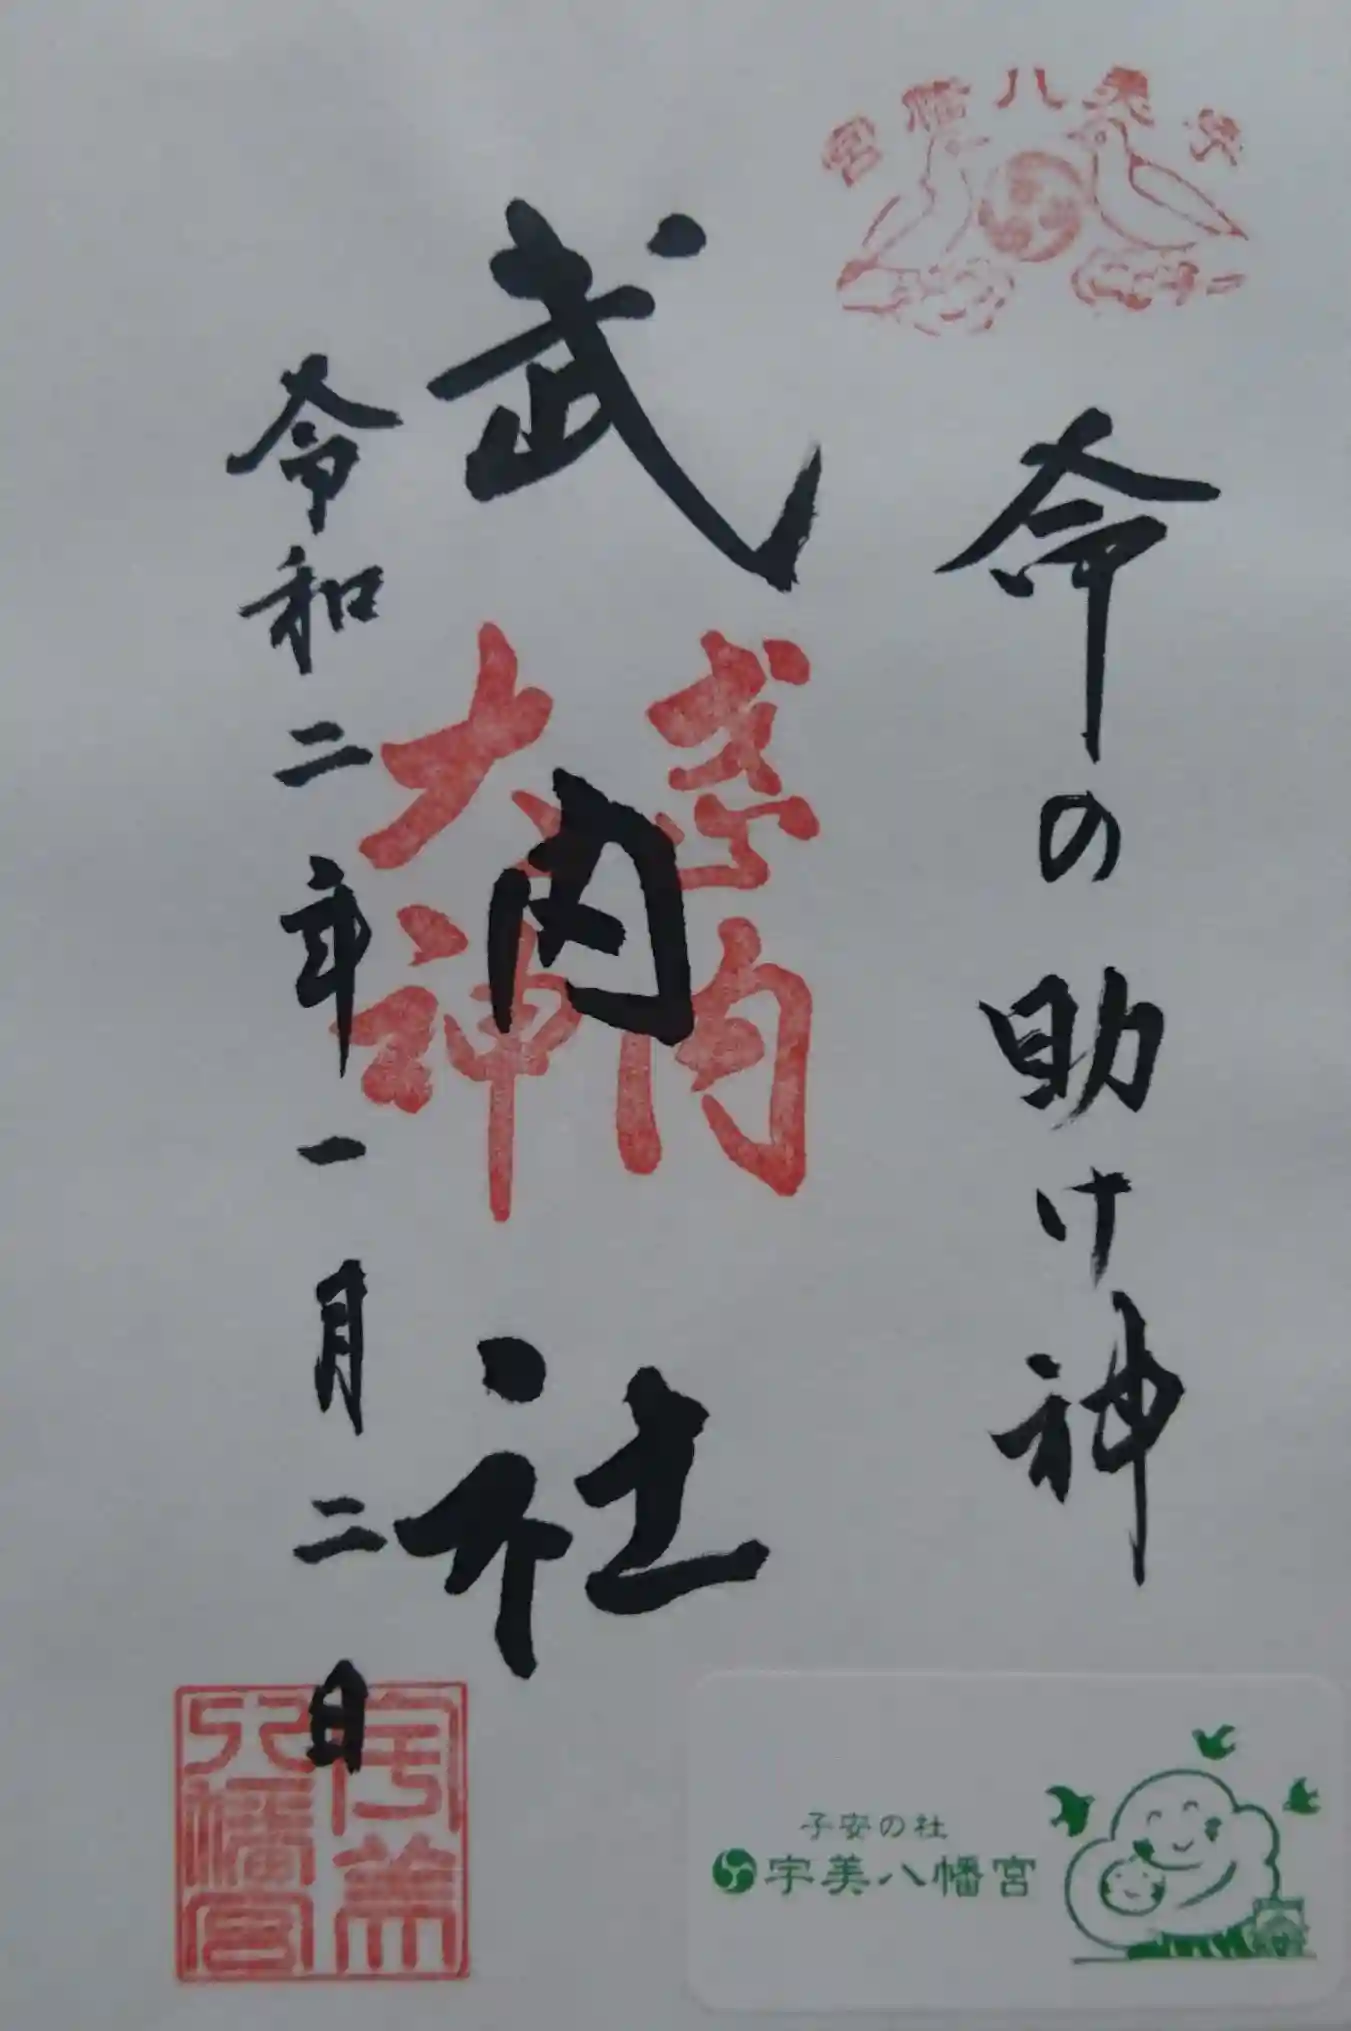 宇美八幡宮
命の助け神
武内社
武内
大神
令和二年一月二日
宇美
八幡宮
子安の社
宇美八幡宮